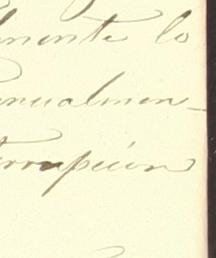 mente lo
anualmen-
terrupcion